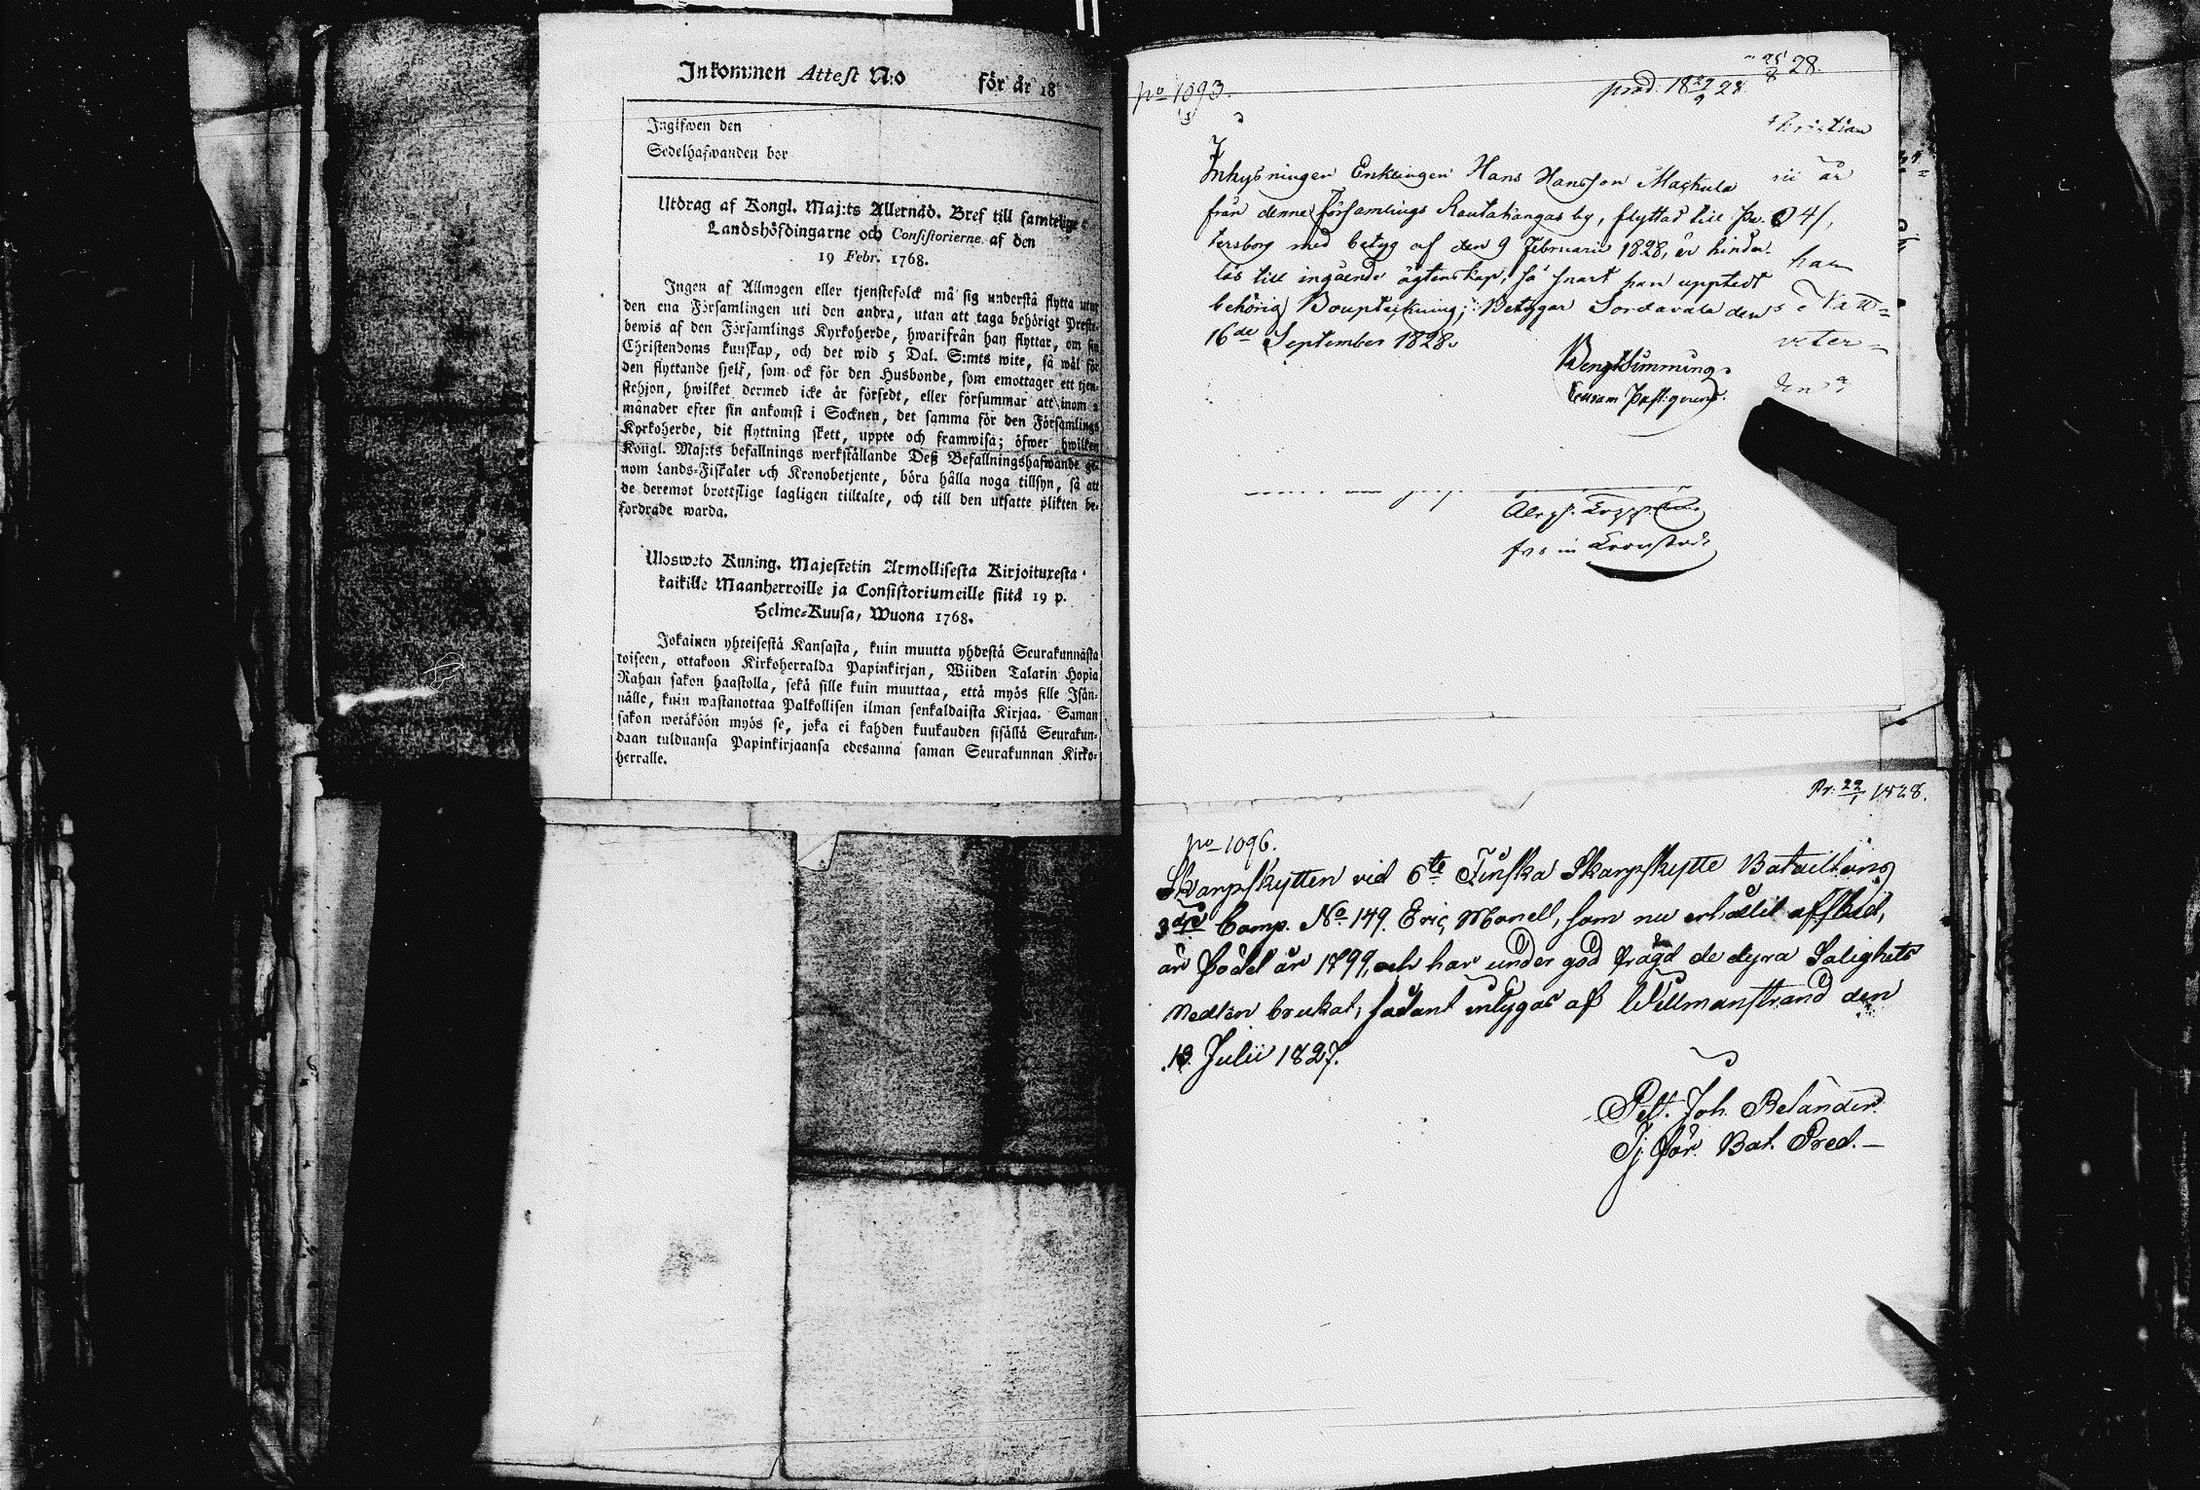 Inkommen Attest N:o för år 18
Ingifwen den
Sedelhafwanden bor
Utdrag af Kongl. Maj:ts Allernåd. Bref till samtelige
Landshöfdingarne och Consistorierne af den
19 Febr. 1768.
Ingen af Allmogen eller tjenstefolck må sig understå flytta utur
den ena Församlingen uti den andra, utan att taga behörigt Prest-
bewis af den Församlings Kyrkoherde, hwarifrån han flyttar, om sin
Christendoms kunskap, och det wid 5 Dal. S:mts wite, så wäl för
den flyttande sjelf, som ock för den Husbonde, som emottager ett tjen-
stehjon, hwilket dermed icke är försedt, eller försummar att inom 2
månader efter sin ankomst i Socknen, det samma för den Församlings
Kyrkoherde, dit flyttning skett, uppte och framwisa; öfwer hwilken
Kongl. Maj:ts befallnings werkställande Deß Befallningshafwande ge-
nom Lands-Fiskaler och Kronobetjente, böra hålla noga tillsyn, så att
de deremot brottslige lagligen tilltalte, och till den utsatte plikten be-
fordrade warda.
Ulosweto Kuning. Majestetin Armollisesta Kirjoituxesta
kaikille Maanherroille ja Consistoriumeille siitä 19 p.
Helme-Kuusa, Wuona 1768.
Jokainen yhteisestä Kansasta, kuin muutta yhdestä Seurakunnasta
toiseen, ottakoon Kirkoherralda Papinkirjan, Wiiden Talarin Hopia
Rahan sakon haastolla, sekä sille kuin muuttaa, että myös sille Isän-
nälle, kuin wastanottaa Palkollisen ilman senkaldaista Kirjaa. Saman
sakon wetäköön myös se, joka ei kahden kuukauden sisällä Seurakun-
daan tulduansa Papinkirjaansa edesanna saman Seurakunnan Kirko-
herralle.
25/8 28.
No 1093.
prod. 18 27/9 28
Inhysningen Enklingen Hans Hansson Machula
från denne Församlings Rautakangas by, flyttad till Pe-
tersborg med betyg af den 9 Februarii 1828, är hinder-
lös till ingående ägtenskap, så snart han upptedt
behörig Bouptekning; Betygar Sordavala den
16de September 1828.
Kristian
är
han
Natt=
veter=
den
Pr. 22/1 1828.
No 1096.
Skarpskytten vid 6te Finska Skarpskytte Bataillons
3dje Comp. No 149. Eric Monell, som nu erhållit afsked,
är född år 1799, och har under god frägd de dyra Salighets
Medlen brukat; sådant intygas af Willmanstrand den
13 Julii 1827.
Pet. Joh. Relander.
Tj. för. Bat. Pred.